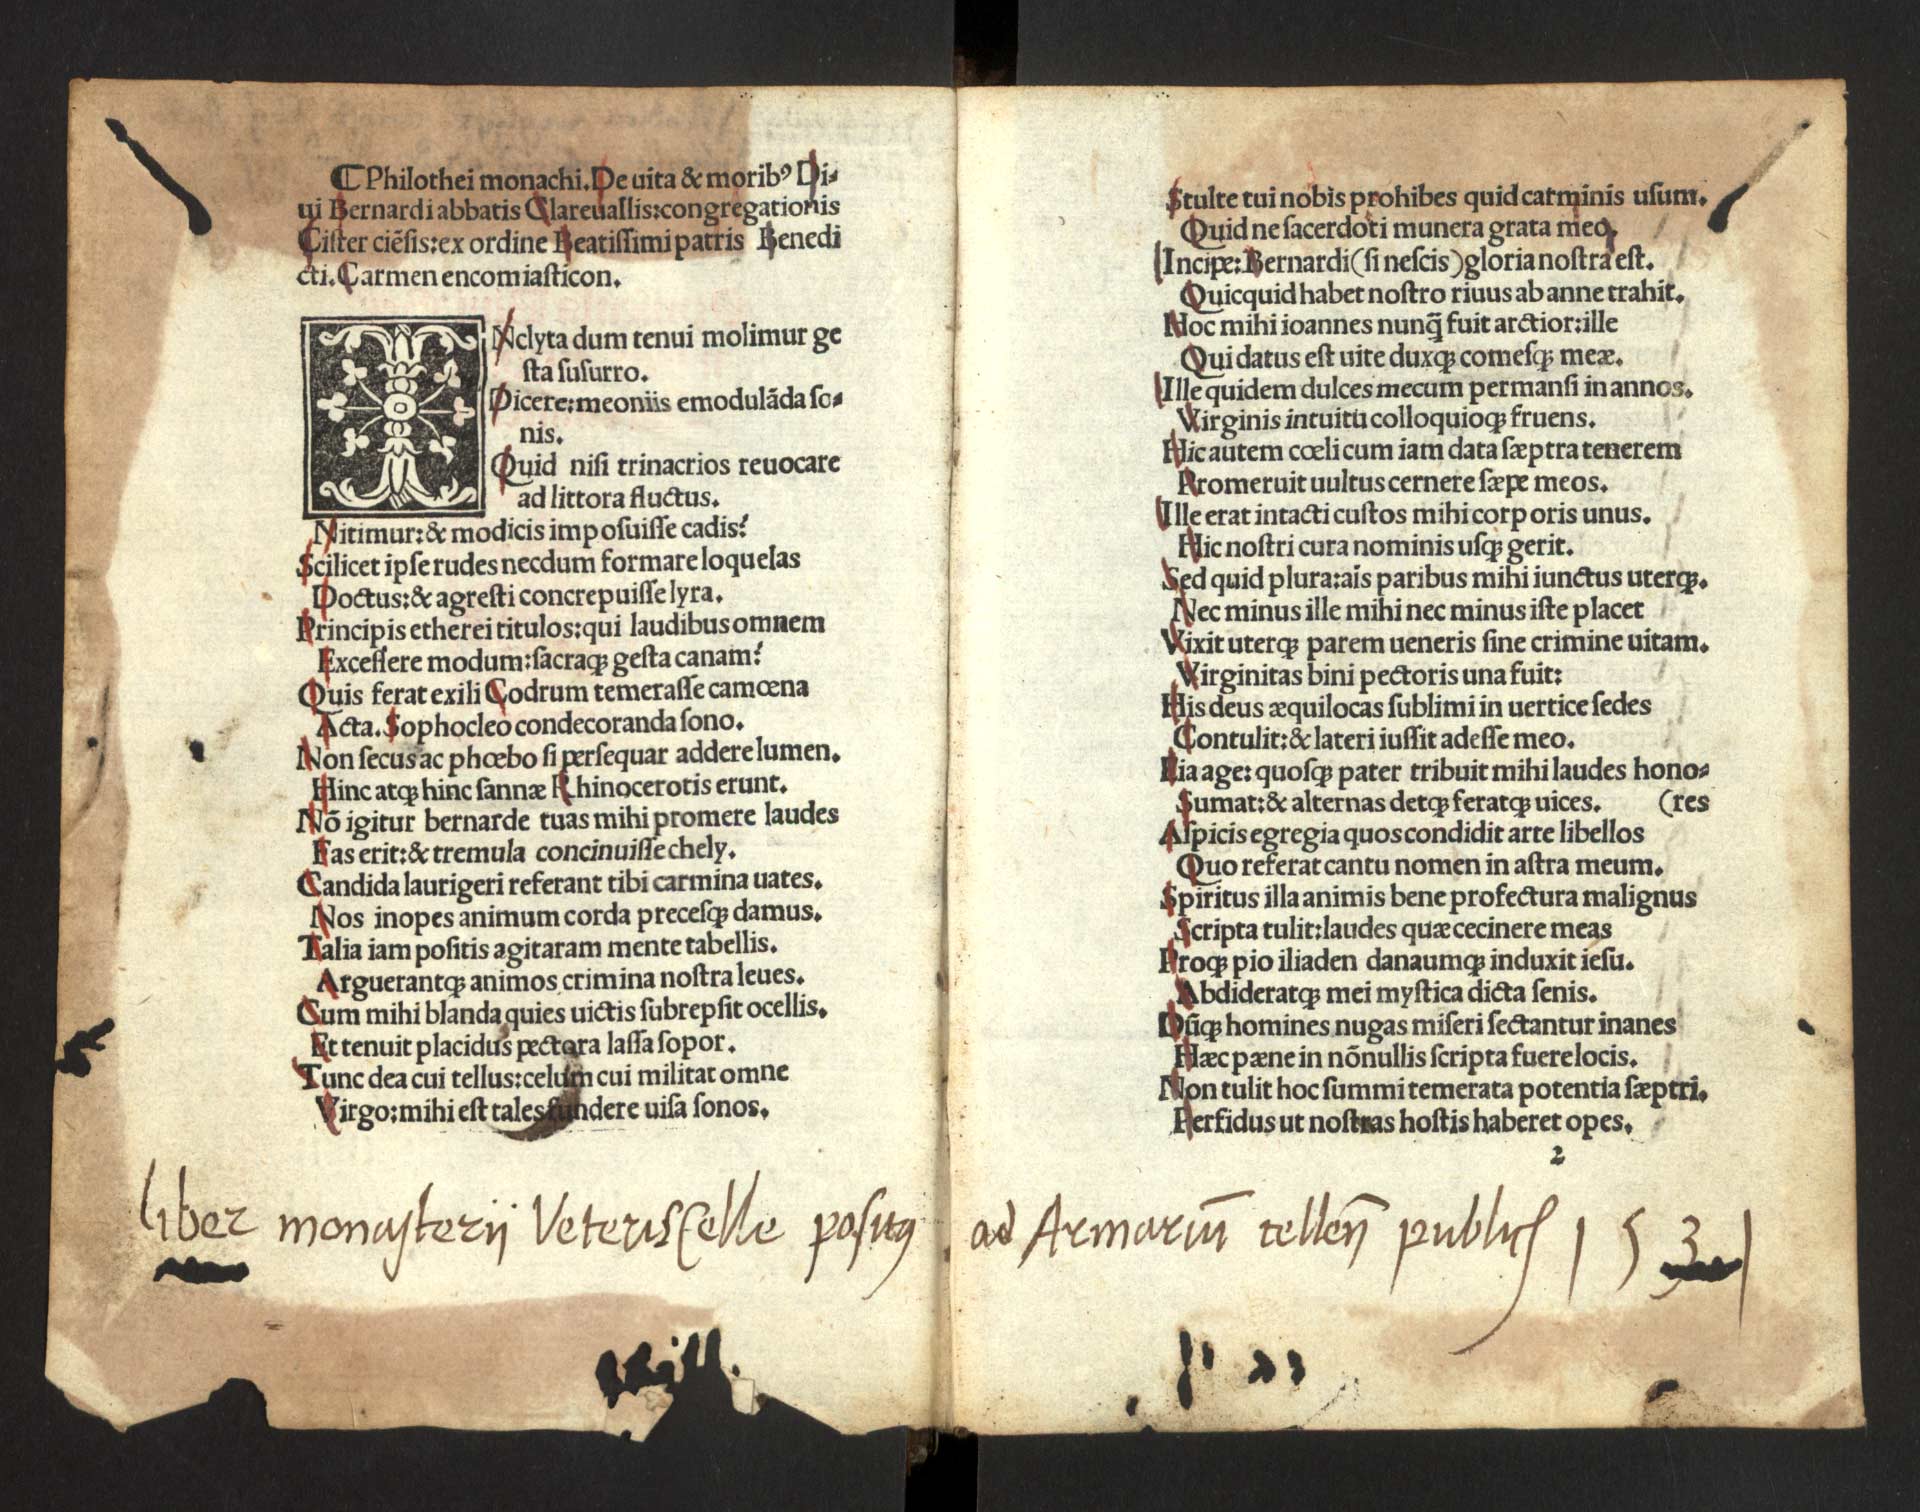 ℄ Philothei monachi. De uita & moribꝰ Di⸗
ui Bernardi abbatis Clareuallis: congregationis
Cisterciẽsis: ex ordine Beatissimi patris Benedi
cti. Carmen encomiasticon.
INclyta dum tenui molimur ge
sta susurro.
Dicere: meoniis emodulãda so⸗
nis.
Quid nisi trinacrios reuocare
ad littora fluctus.
Nitimur: & modicis imposuisse cadis?
Scilicet ipse rudes necdum formare loquelas
Doctus: & agresti concrepuisse lyra.
Principis etherei titulos: qui laudibus omnem
Excessere modum: sacraqꝫ gesta canam?
Quis ferat exili Codrum temerasse camœna
Acta. Sophocleo condecoranda sono.
Non secus ac phœbo si persequar addere lumen.
Hinc atqꝫ hinc sannæ Rhinocerotis erunt.
Nõ igitur bernarde tuas mihi promere laudes
Fas erit: & tremula concinuisse chely.
Candida laurigeri referant tibi carmina uates.
Nos inopes animum corda precesqꝫ damus.
Talia iam positis agitaram mente tabellis.
Arguerantqꝫ animos crimina nostra leues.
Cum mihi blanda quies uictis subrepsit ocellis.
Et tenuit placidus pectora lassa sopor.
Tunc dea cui tellus: celum cui militat omne
Virgo: mihi est tales fundere uisa sonos.
liber monasterij VeterisCelle positꝰ
Stulte tui nobis prohibes quid carminis usum.
Quid ne sacerdoti munera grata meo.
Incipe: Bernardi (si nescis) gloria nostra est.
Quicquid habet nostro riuus ab amne trahit.
Hoc mihi ioannes nunq̃ fuit arctior: ille
Qui datus est uite duxqꝫ comesqꝫ meæ.
Ille quidem dulces mecum permansi in annos.
Virginis intuitu colloquioqꝫ fruens.
Hic autem cœli cum iam data sæptra tenerem
Promeruit uultus cernere sæpe meos.
Ille erat intacti custos mihi corporis unus.
Hic nostri cura nominis usqꝫ gerit.
Sed quid plura: aĩs paribus mihi iunctus uterqꝫ.
Nec minus ille mihi nec minus iste placet
Vixit uterqꝫ parem ueneris sine crimine uitam.
Virginitas bini pectoris una fuit:
His deus æquilocas sublimi in uertice sedes
Contulit: & lateri iussit adesse meo.
Eia age: quosqꝫ pater tribuit mihi laudes hono⸗
Sumat: & alternas detqꝫ feratqꝫ uices. (res
Aspicis egregia quos condidit arte libellos
Quo referat cantu nomen in astra meum.
Spiritus illa animis bene profectura malignus
Scripta tulit: laudes quæ cecinere meas
Proqꝫ pio iliaden danaumqꝫ induxit iesu.
Abdideratqꝫ mei mystica dicta senis.
Dũqꝫ homines nugas miseri sectantur inanes
Hæc pæne in nõnullis scripta fuere locis.
Non tulit hoc summi temerata potentia sæptri.
Perfidus ut nostras hostis haberet opes.
2
ad Armariũ cellen̄ publicũ 1531